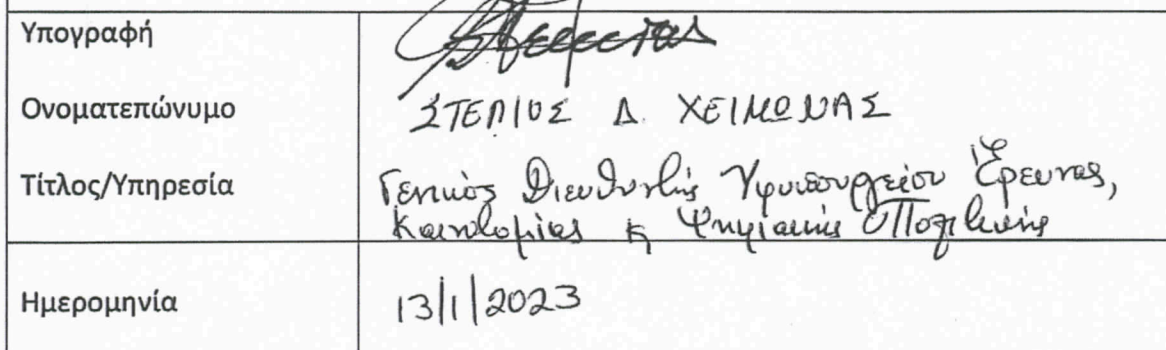 Υπογραφή
Ονοματεπώνυμο ΣΤΕΛΙΟΣ Δ. ΧΕΙΜΩΝΑΣ
Τίτλος/Υπηρεσία Γενικός Διευθυντής Υφυπουργείου Έρευνας,
Καινοτομίας κ Ψηφιακής Πολιτικής
Ημερομηνία 13/1/2023